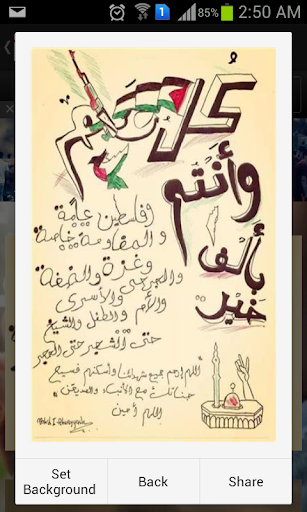 85% 2:50 AM
كل عام
وأنتم
بألف
خير
وفلسطين عامة
والمقاومة خاصة
وغزة والضفة
والجرحى والأسرى
والأم والطفل والشيخ
حتى الشجر حتى الحجر
اللهم ارحم جميع شهدائنا وأسكنهم فسيح
جناتك مع الأنبياء والصديقين
اللهم آمين
Set Background
Back
Share